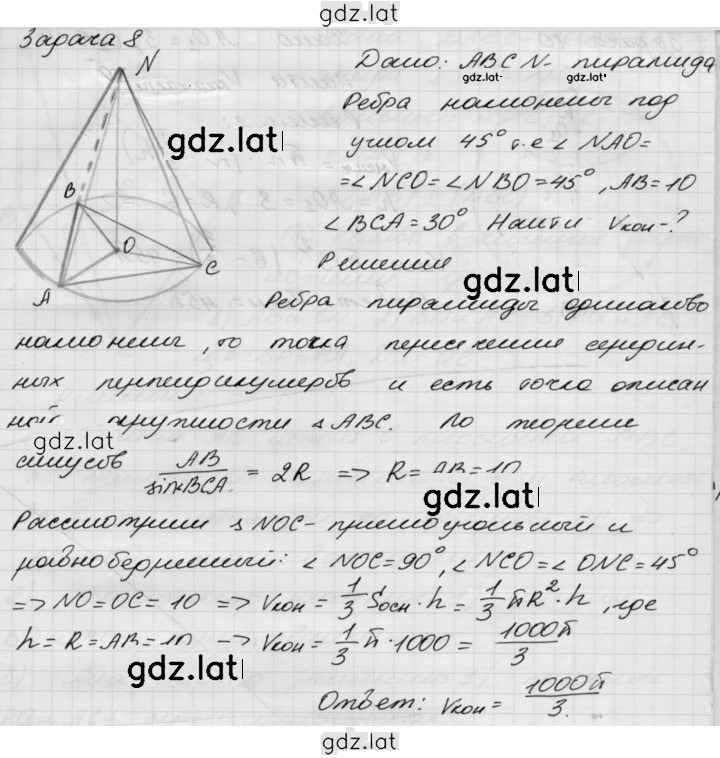 gdz.lat
Задача 8
N
B
O
A
C
gdz.lat
Дано: ABCN - пирамида
gdz.lat gdz.lat
Ребра наклонены под
углом 45° т.е ∠ NAO=
=∠NCO=∠NBO=45°, AB=10
∠BCA=30° Найти Vкон-?
Решение
gdz.lat
Ребра пирамиды одинаково
наклонены, то точка пересечения середин-
ных перпендикуляров и есть точка описан
ной окружности ΔABC. По теореме
gdz.lat
синусов AB/sinBCA = 2R => R= AB=10
gdz.lat
Рассмотрим Δ NOC- прямоугольный и
равнобедренный: ∠ NOC=90°, ∠ NCO=∠ ONC=45°
=> NO=OC=10 => Vкон = 1/3 Sосн·h = 1/3 πR²·h, где
h=R=AB=10 -> Vкон = 1/3 π·1000 = 1000π/3
gdz.lat
Ответ: Vкон = 1000π/3.
gdz.lat